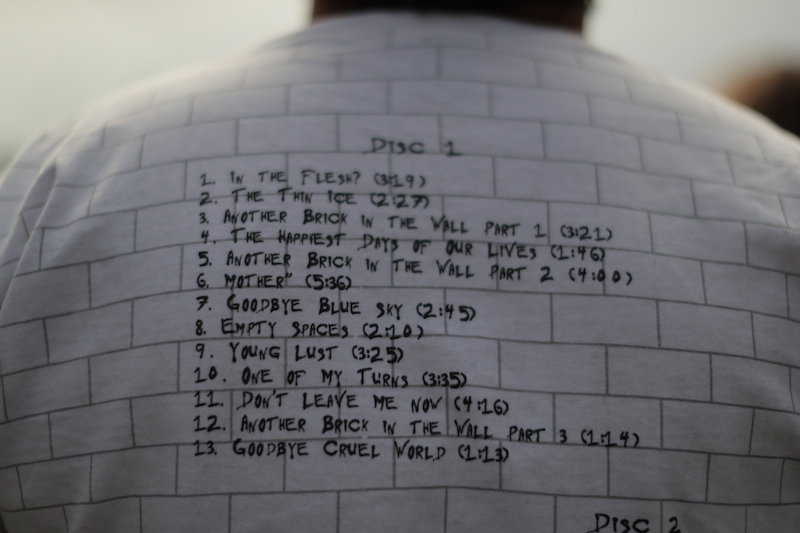 DISC 1
1. IN THE FLESH? (3:19)
2. THE THIN ICE (2:27)
3. ANOTHER BRICK IN THE WALL PART 1 (3:21)
4. THE HAPPIEST DAYS OF OUR LIVES (1:46)
5. ANOTHER BRICK IN THE WALL PART 2 (4:00)
6. MOTHER" (5:36)
7. GOODBYE BLUE SKY (2:45)
8. EMPTY SPACES (2:10)
9. YOUNG LUST (3:25)
10. ONE OF MY TURNS (3:35)
11. DON'T LEAVE ME NOW (4:16)
12. ANOTHER BRICK IN THE WALL PART 3 (1:14)
13. GOODBYE CRUEL WORLD (1:13)
DISC 2